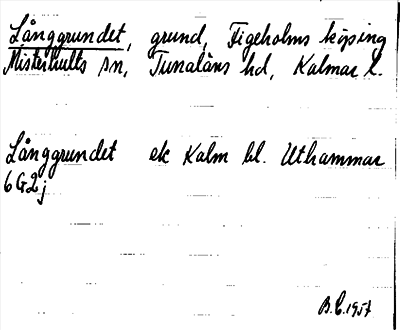 Långgrundet, grund, Figeholms köping
Misterhults sn, Tunaläns hd, Kalmar l.
Långgrundet ek Kalm bl. Uthammar
6G2j
B.C. 1957